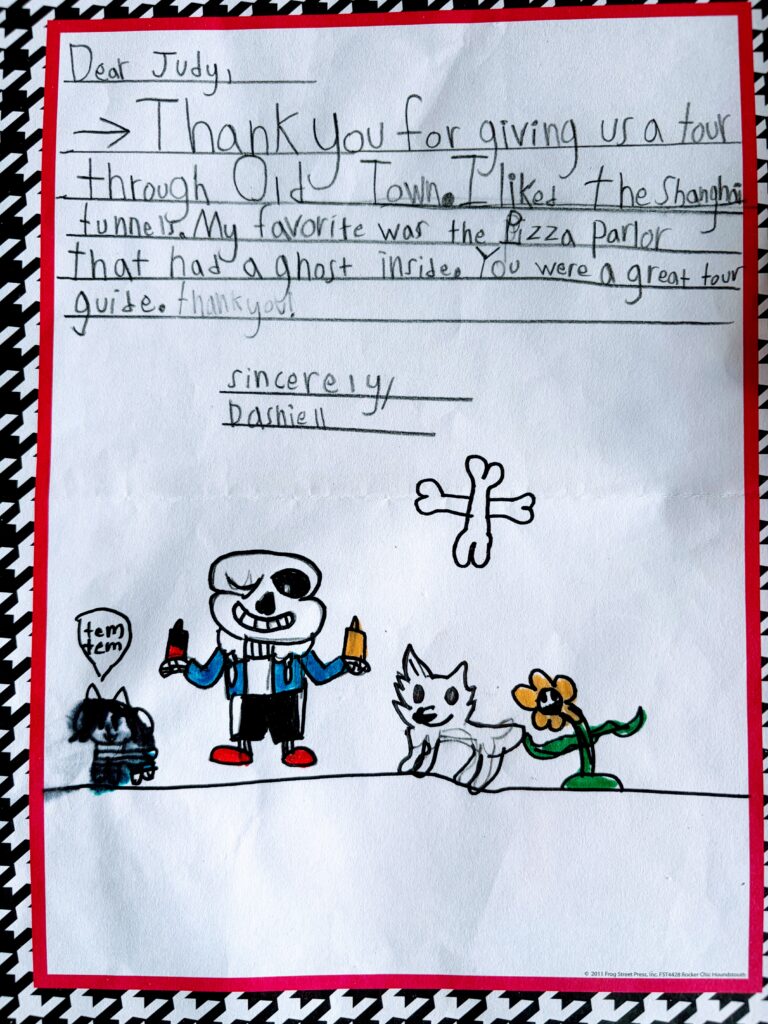 Dear Judy,
→ Thank you for giving us a tour
through Old Town. I liked the Shanghai
tunnels. My favorite was the Pizza Parlor
that had a ghost inside. You were a great tour
guide. thank you!
sincerely,
Dashiell
tem
tem
© 2011 Frog Street Press, Inc. FST4428 Rocker Chic Houndstooth